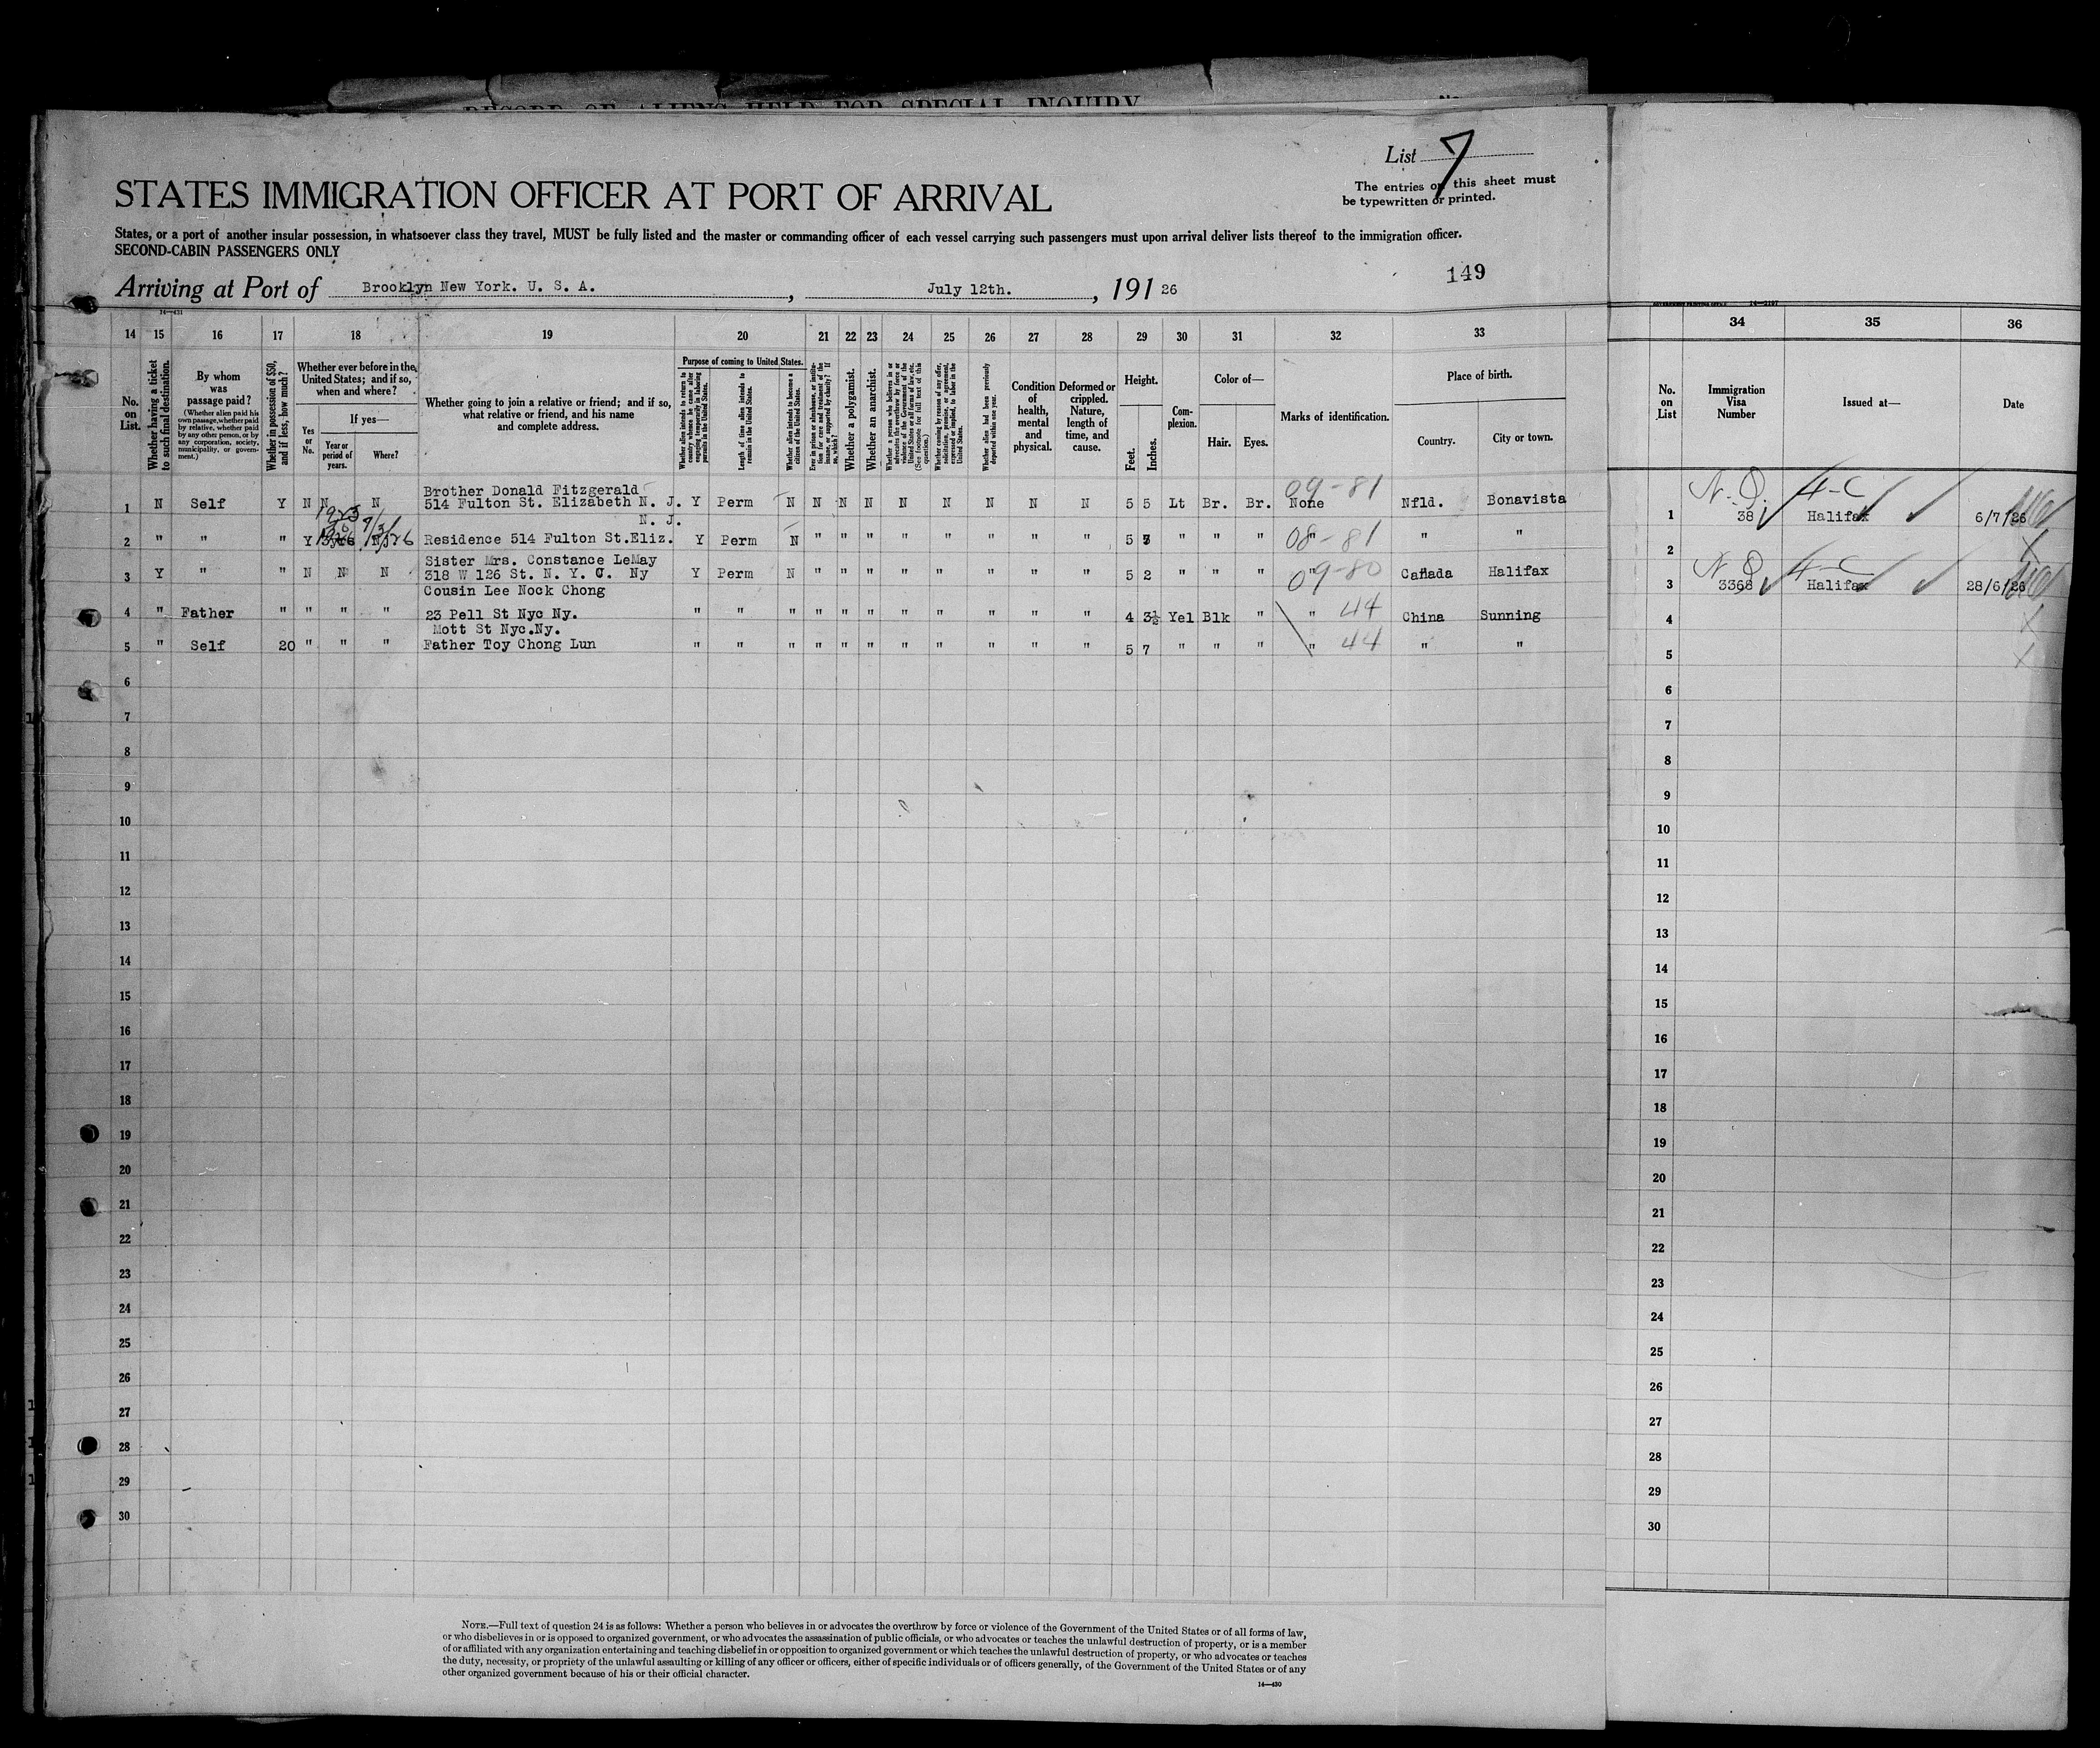 RECORD OF ALIENS HELD FOR SPECIAL INQUIRY
List 7
STATES IMMIGRATION OFFICER AT PORT OF ARRIVAL
The entries on this sheet must
be typewritten or printed.
States, or a port of another insular possession, in whatsoever class they travel, MUST be fully listed and the master or commanding officer of each vessel carrying such passengers must upon arrival deliver lists thereof to the immigration officer.
SECOND-CABIN PASSENGERS ONLY
149
Arriving at Port of Brooklyn New York. U. S. A. , July 12th. , 191 26
14—431
14 15 16 17 18 19 20 21 22 23 24 25 26 27 28 29 30 31 32 33 34 35 36
No. on List.
Whether having a ticket to such final destination.
By whom was passage paid?
(Whether alien paid his own passage, whether paid by relative, whether paid by any other person, or by any corporation, society, municipality, or government.)
Whether in possession of $50, and if less, how much?
Whether ever before in the United States; and if so, when and where?
Yes or No.
If yes—
Year or period of years.
Where?
Whether going to join a relative or friend; and if so, what relative or friend, and his name and complete address.
Purpose of coming to United States.
Whether alien intends to return to country whence he came after engaging temporarily in laboring pursuits in the United States.
Length of time alien intends to remain in the United States.
Whether alien intends to become a citizen of the United States.
Ever in prison or almshouse, or institution for care and treatment of the insane, or supported by charity? If so, which?
Whether a polygamist.
Whether an anarchist.
Whether a person who believes in or advocates the overthrow by force or violence of the Government of the United States or all forms of law, etc. (See footnote for full text of this question.)
Whether coming by reason of any offer, solicitation, promise, or agreement, expressed or implied, to labor in the United States.
Whether alien had been previously deported within one year.
Condition of health, mental and physical.
Deformed or crippled. Nature, length of time, and cause.
Height.
Feet.
Inches.
Complexion.
Color of—
Hair.
Eyes.
Marks of identification.
Place of birth.
Country.
City or town.
No. on List
Immigration Visa Number
Issued at—
Date
Brother Donald Fitzgerald 09-81
1 N Self Y N N N 514 Fulton St. Elizabeth N. J. Y Perm N N N N N N N N N 5 5 Lt Br. Br. None Nfld. Bonavista 1 38 Halifax 6/7/26
N. J.
2 " " " Y Residence 514 Fulton St.Eliz. Y Perm N " " " " " " " " 5 " " " " 08-81 " " 2
Sister Mrs. Constance LeMay
3 Y " " N N N 318 W 126 St. N. Y. C. Ny Y Perm N " " " " " " " " 5 2 " " " " 09-80 Canada Halifax 3 3368 Halifax 28/6/26
Cousin Lee Nock Chong
4 " Father " " " " 23 Pell St Nyc Ny. " " " " " " " " " " " 4 3½ Yel Blk " " 44 China Sunning 4
Mott St Nyc.Ny.
5 " Self 20 " " " Father Toy Chong Lun " " " " " " " " " " " 5 7 " " " " 44 " " 5
6 6
7 7
8 8
9 9
10 10
11 11
12 12
13 13
14 14
15 15
16 16
17 17
18 18
19 19
20 20
21 21
22 22
23 23
24 24
25 25
26 26
27 27
28 28
29 29
30 30
NOTE.—Full text of question 24 is as follows: Whether a person who believes in or advocates the overthrow by force or violence of the Government of the United States or of all forms of law,
or who disbelieves in or is opposed to organized government, or who advocates the assassination of public officials, or who advocates or teaches the unlawful destruction of property, or is a member
of or affiliated with any organization entertaining and teaching disbelief in or opposition to organized government or which teaches the unlawful destruction of property, or who advocates or teaches
the duty, necessity, or propriety of the unlawful assaulting or killing of any officer or officers, either of specific individuals or of officers generally, of the Government of the United States or of any
other organized government because of his or their official character.
14—430